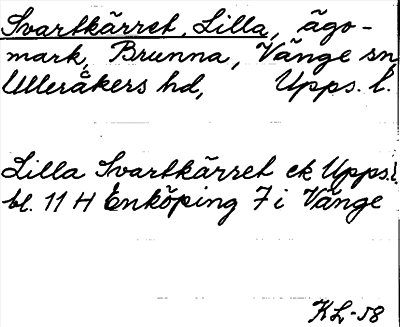 Svartkärret, Lilla, ägo-
mark, Brunna, Vänge sn,
Ulleråkers hd, Upps. l.
Lilla Svartkärret ek Upps.l.
bl. 11 H Enköping 7 i Vänge
KL-58